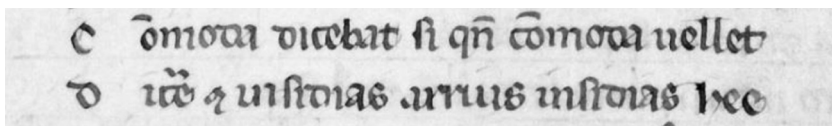 C õmoda dicebat si qñ cõmoda uellet
D ic̃e ⁊ insidias arrius insidias hee